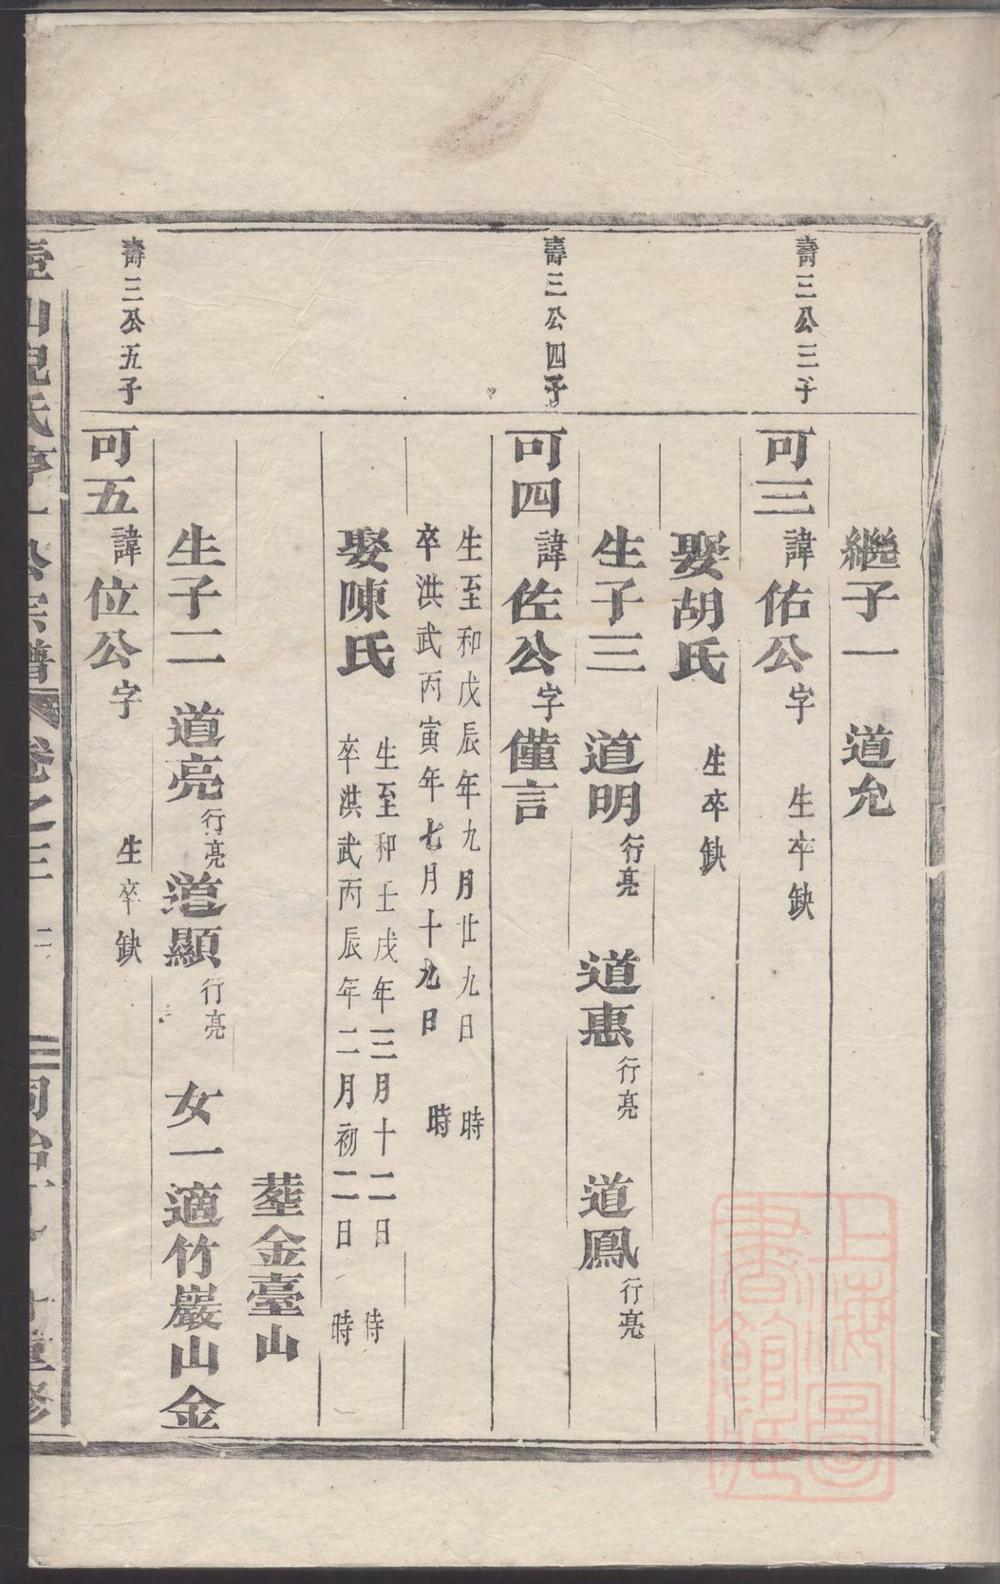 繼子一 道允
壽三公三子
可三諱佑公字 生卒缺
娶胡氏 生卒缺
生子三 道明行亮 道惠行亮 道鳳行亮
壽三公四子
可四諱佐公字僅言
生至和戊辰年九月廿九日 時
卒洪武丙寅年七月十九日 時
娶陳氏
生至和壬戌年三月十二日 時
卒洪武丙辰年二月初二日 時
葬金臺山
生子二 道亮行亮 道顯行亮 女一適竹巖山金
壽三公五子
可五諱位公字 生卒缺
上海圖書館藏